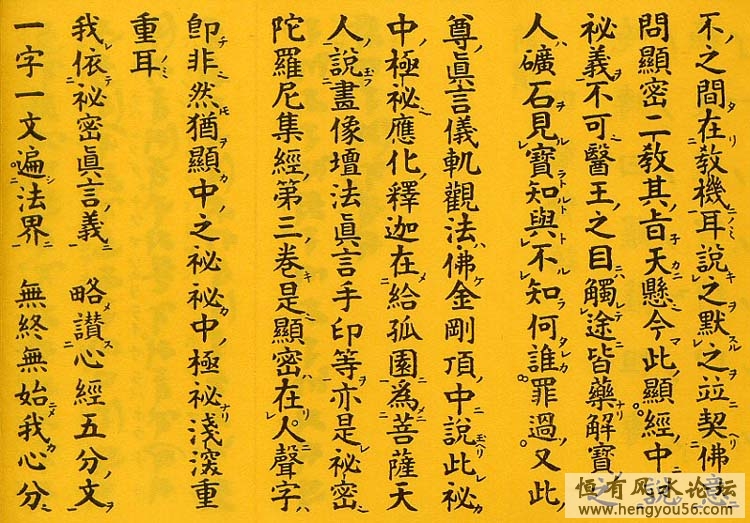 不之間在教機耳說之默之竝契佛意
問顯密二教其旨天懸今此顯經中說
祕義不可醫王之目觸途皆藥解寶之
人礦石見寶知與不知何誰罪過。又此
尊眞言儀軌觀法佛金剛頂中說此祕
中極祕應化釋迦在給孤園爲菩薩天
人說畫像壇法眞言手印等亦是祕密
陀羅尼集經第三卷是顯密在人聲字
卽非然猶顯中之祕祕中極祕淺深重
重耳
我依祕密眞言義 略讚心經五分文
一字一文遍法界 無終無始我心分
恒有风水论坛
www.hengyou56.com